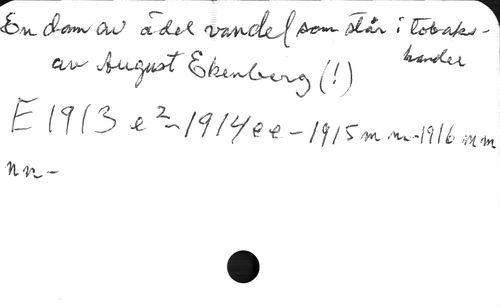 En dam av ädel vandel som står i tobaks-
handel
av August Ekenberg (!)
E 1913 e²- 1914 e e - 1915 m m - 1916 m m
n n -